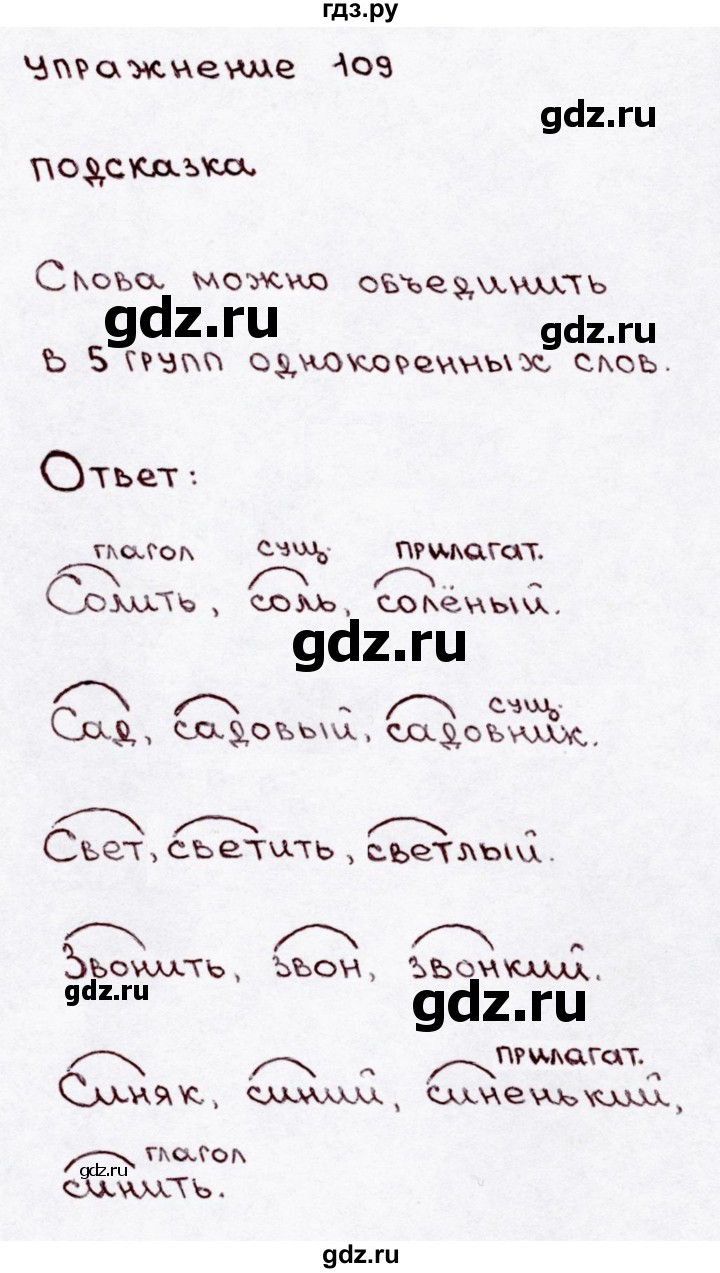 гдз.ру
Упражнение 109
gdz.ru
подсказка
Слова можно объединить
gdz.ru
gdz.ru
в 5 групп однокоренных слов.
Ответ:
глагол сущ. прилагат.
Солить, соль, солёный.
gdz.ru
сущ.
Сад, садовый, садовник.
Свет, светить, светлый.
Звонить, звон, звонкий.
gdz.ru
gdz.ru
прилагат.
Синяк, синий, синенький,
глагол
gdz.ru
синить.
gdz.ru